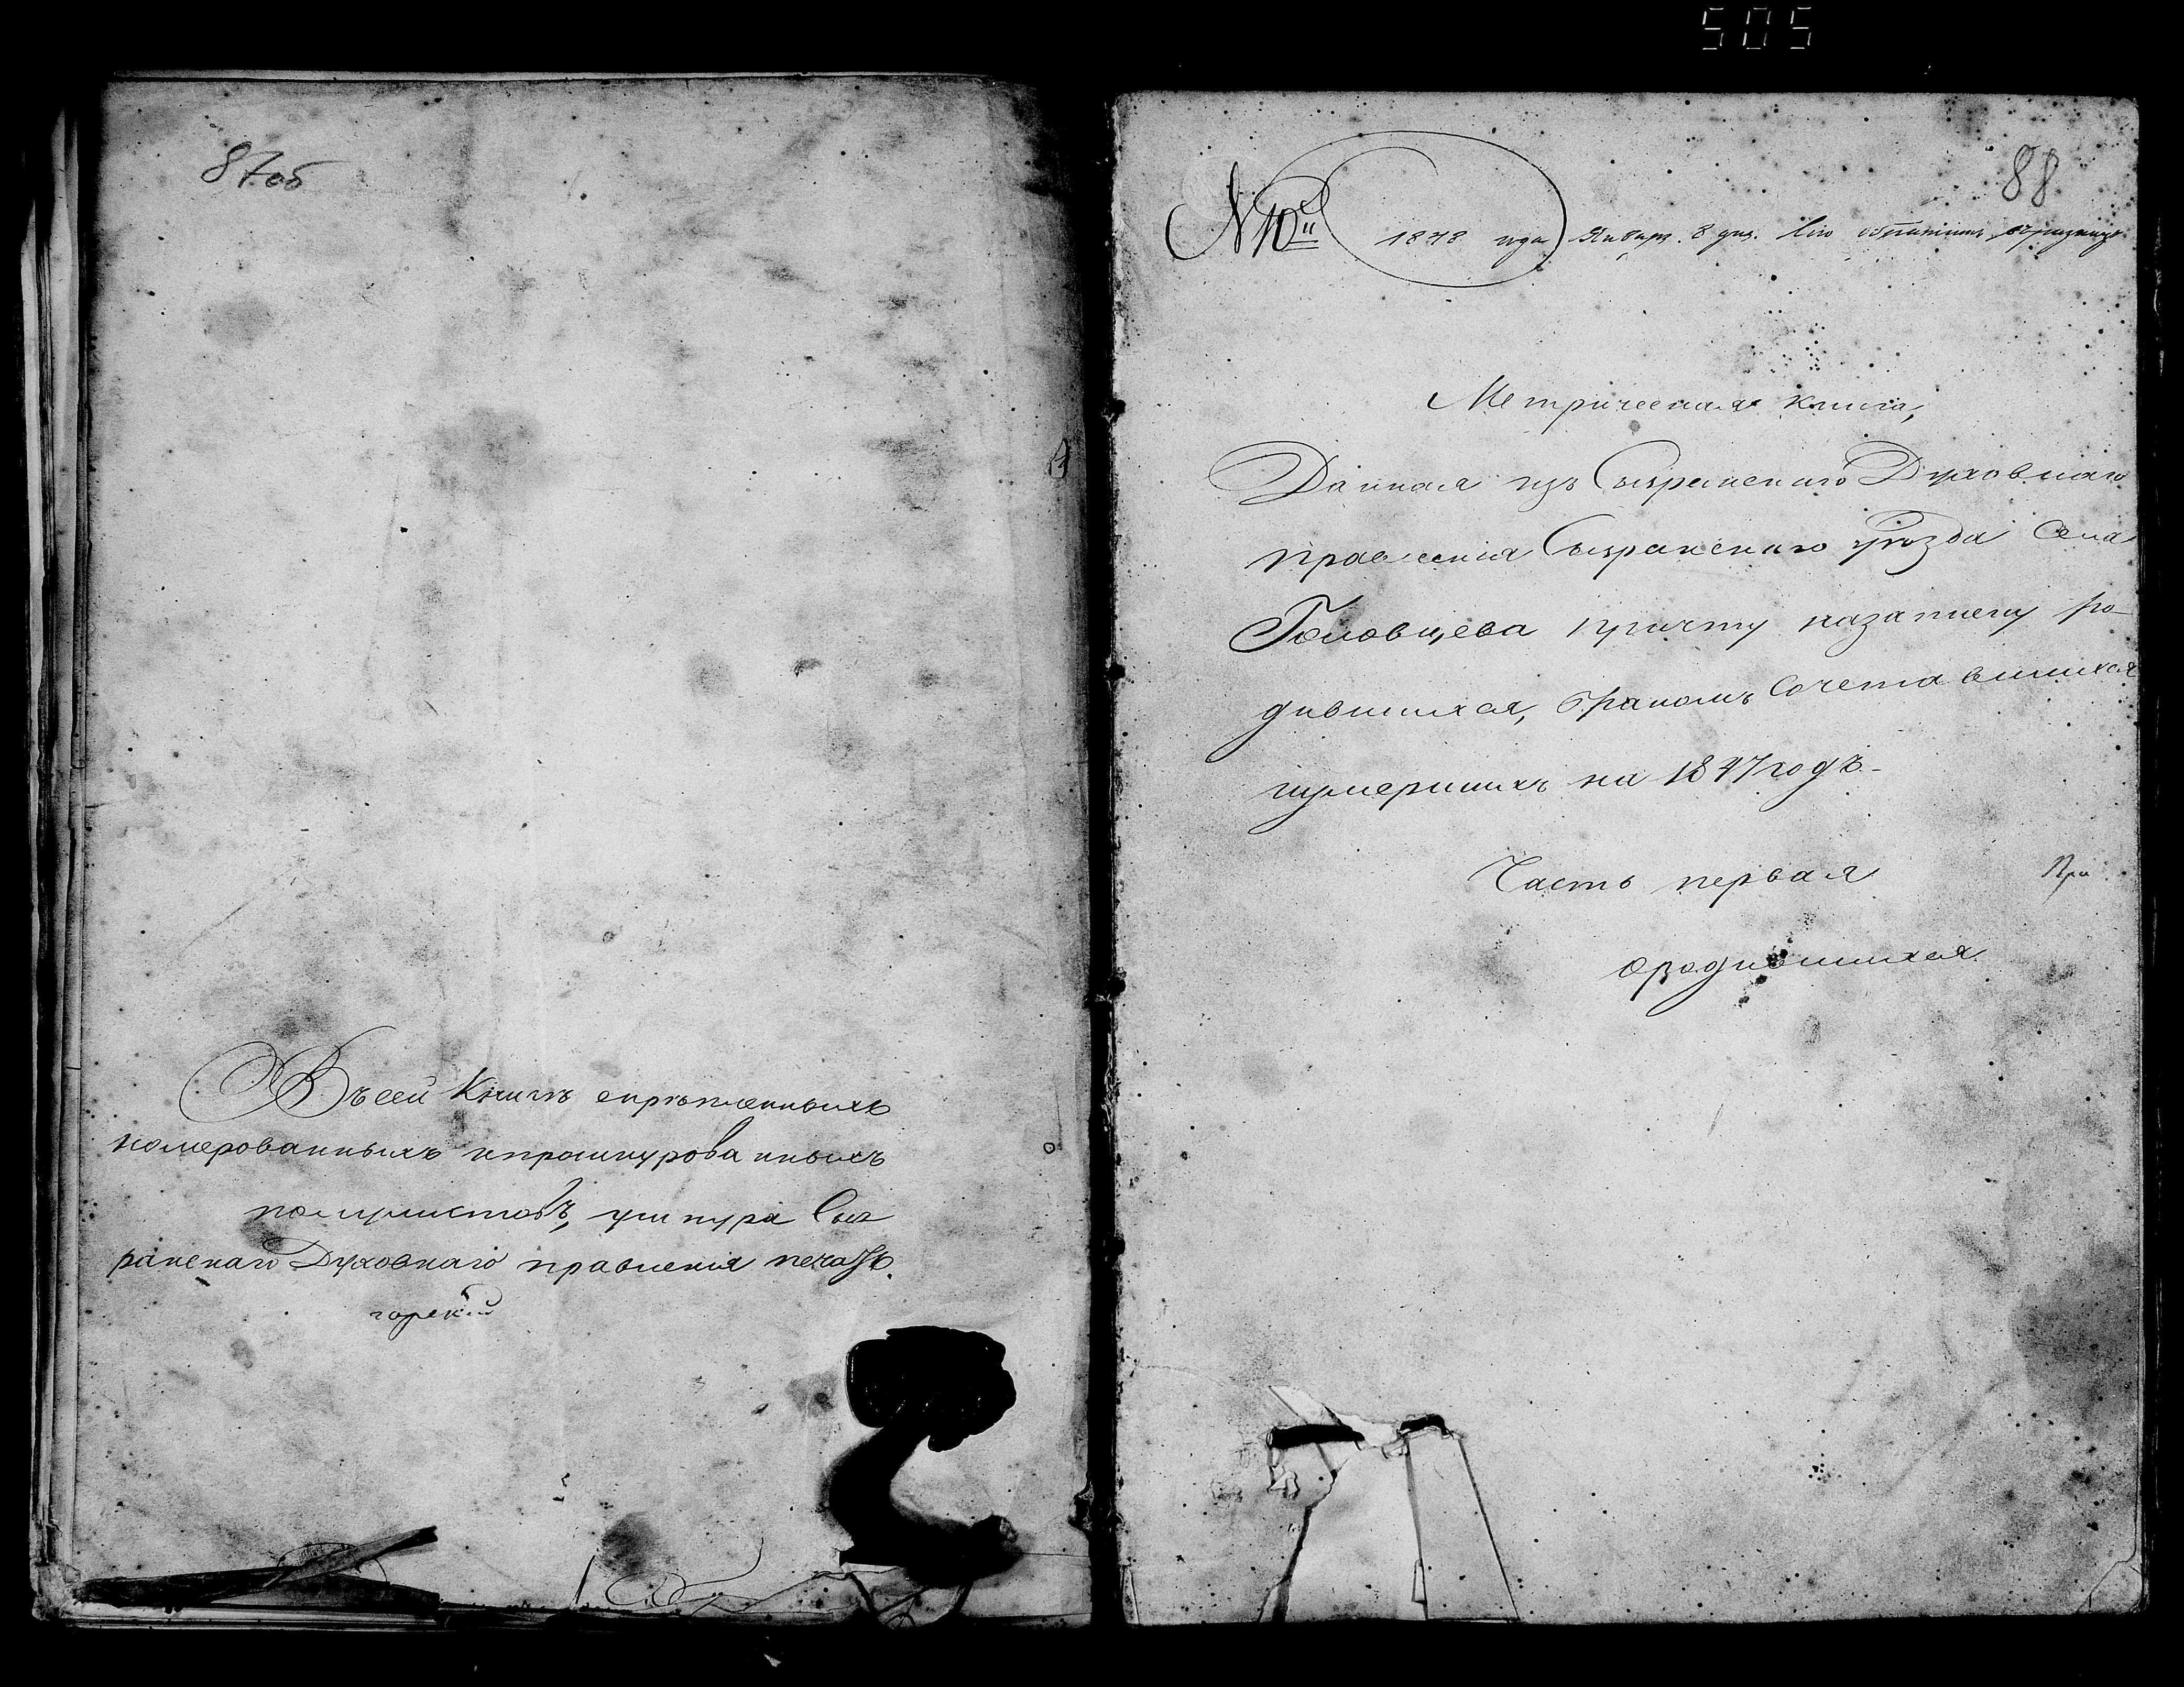 505
87об
Въ сей Книгѣ скрѣпленныхъ
номерованныхъ ипрошнурованныхъ
полулистовъ, ушнура Сыз
ранскаго Духовнаго правленія печать.
88
№ 10й 1848 года Январ. 8 дня.
Метрическая книга,
Данная изъ Сызранскаго Духовнаго
правленія Сызранскаго уѣзда Села
Головцева причту назапись ро-
дившихся, бракомъ Сочетавшихся
иумершихъ на 1847 годъ-
Часть первая
При
ородившихся